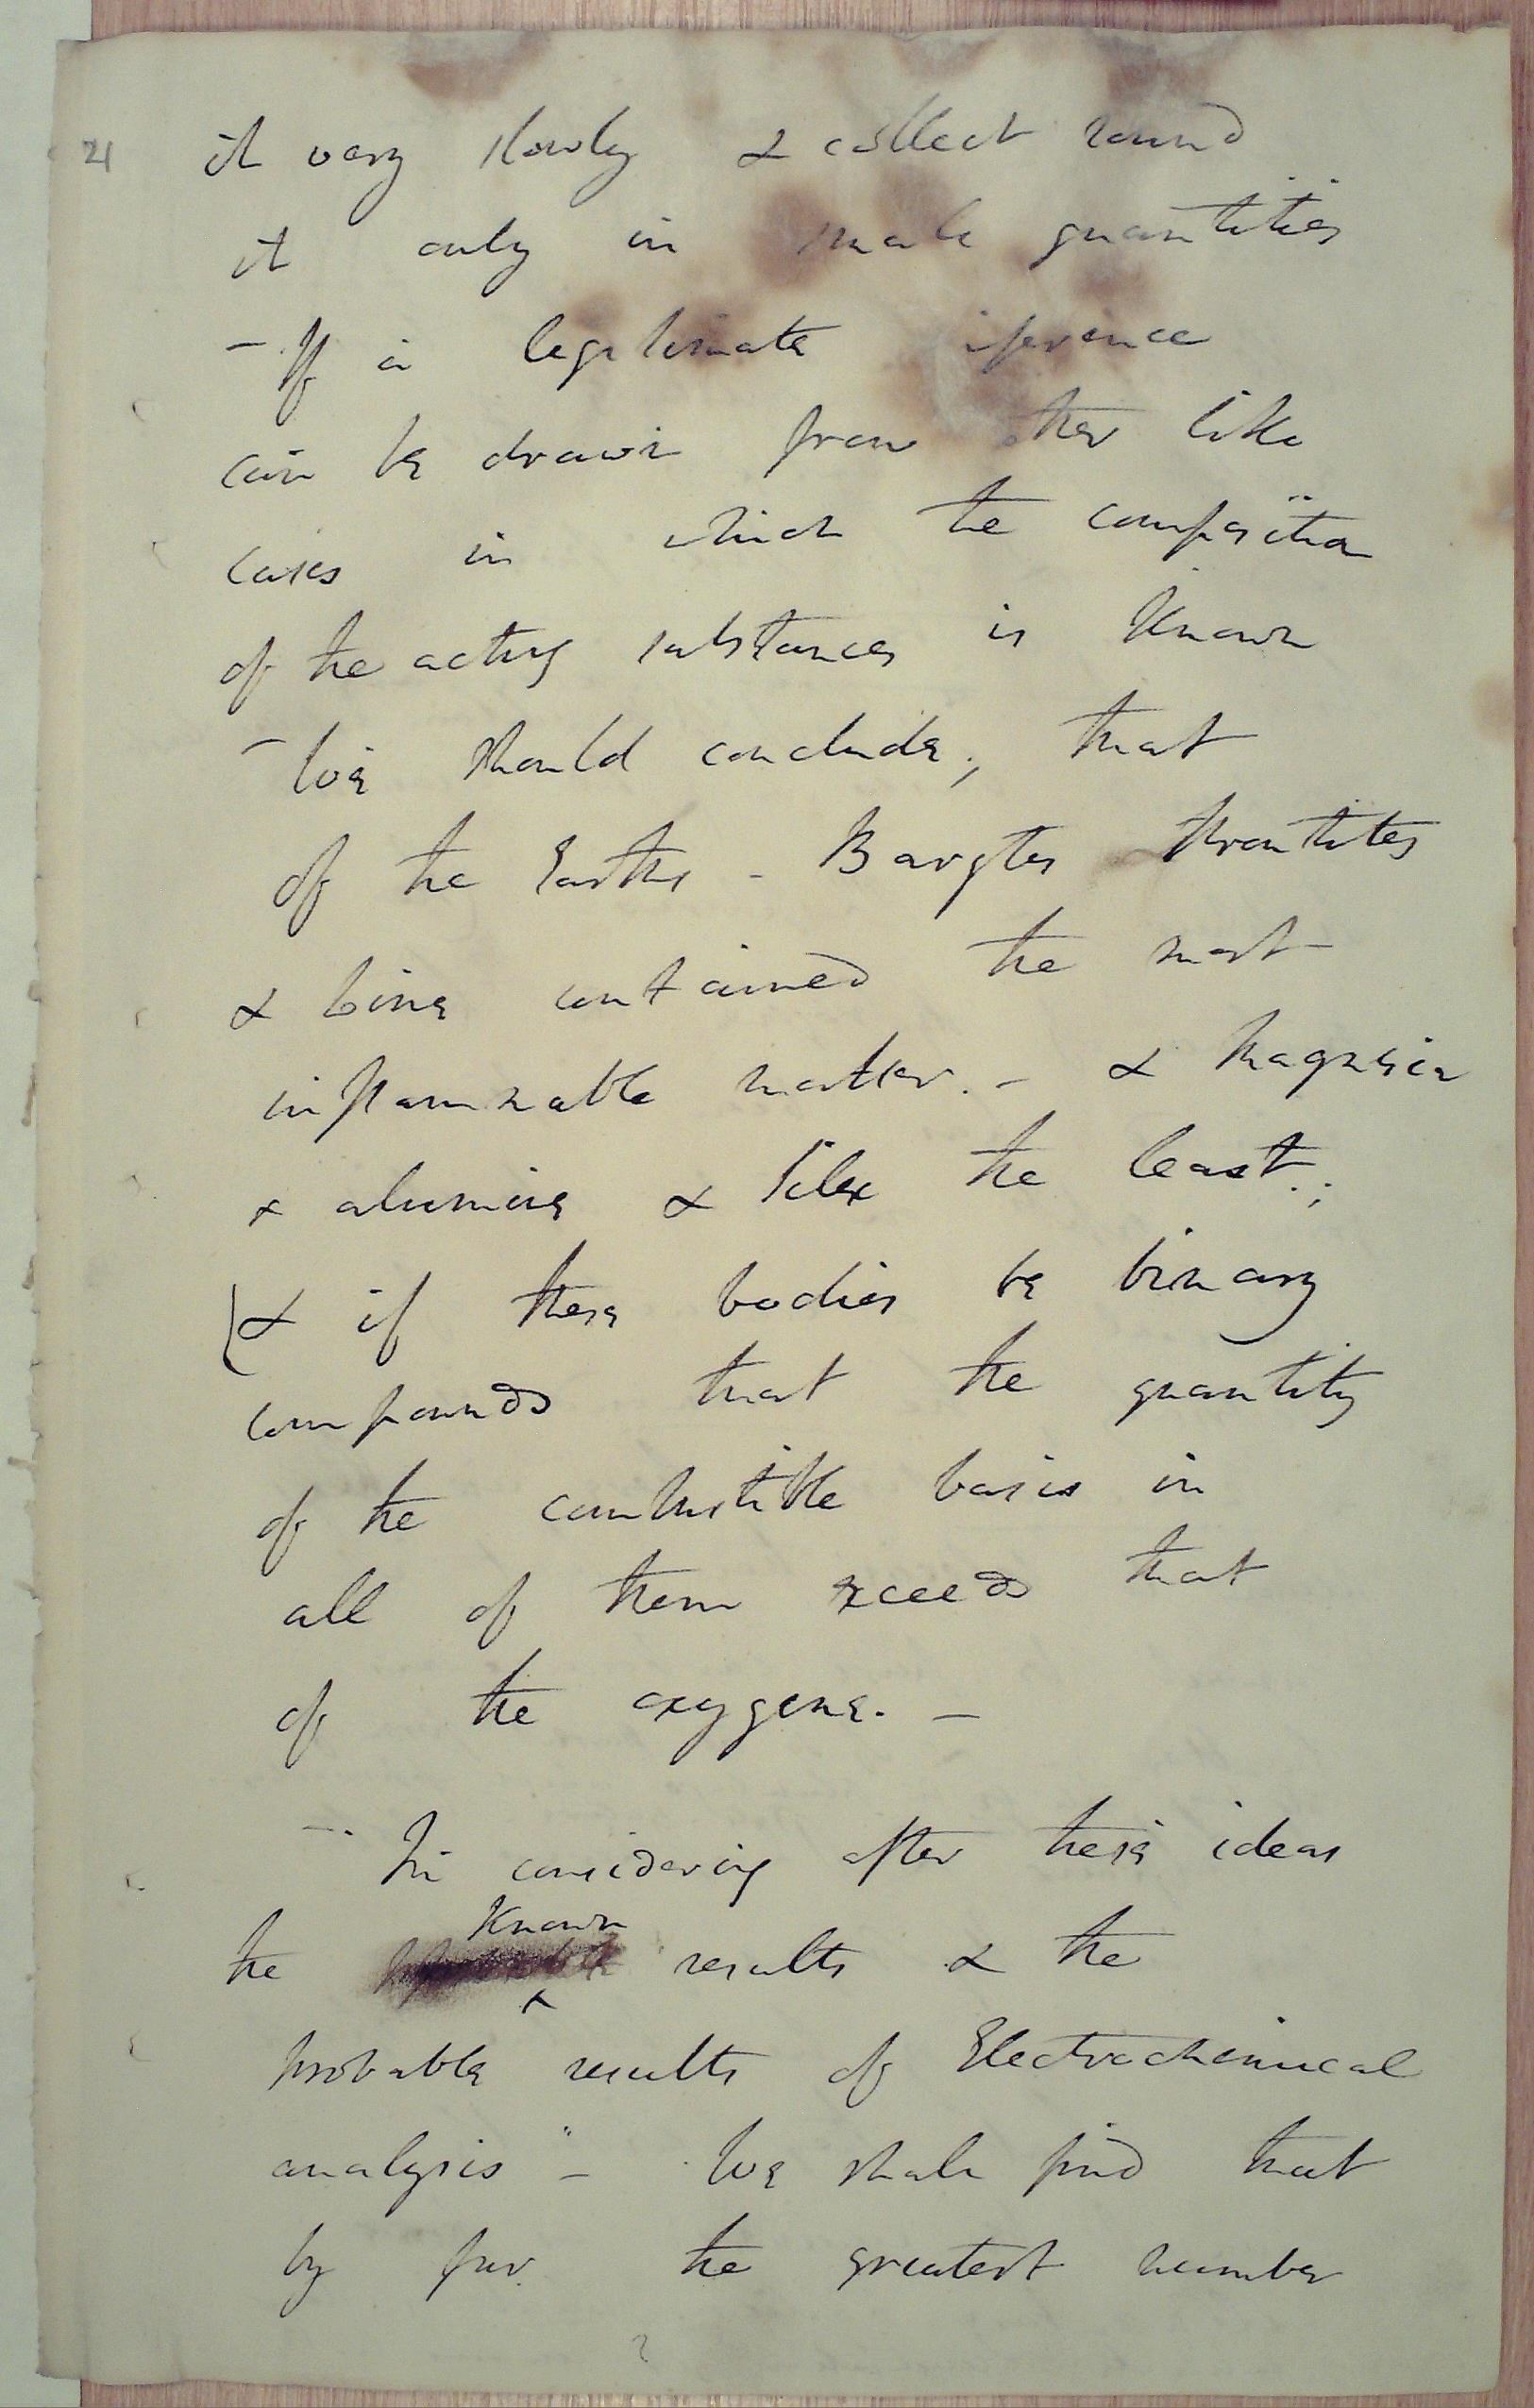 21
it very slowly & collect round
it only in small quantities
- If a legitimate iference
can be drawn from other like
cases in which the composition
of the acting substances is known
- We should conclude; that
of the Earths - Barytes Strontites
& Lime contained the most
inflammable matter. - & Magnesia
& alumine & Silex the least.;
& if these bodies be binary
compounds that the quantity
of the combustible basis in
all of them exceeds that
of the oxygene. -
- In considering after these ideas
Known
the results & the
probable results of Electrochemical
analysis" - We shall find that
by far the greatest number